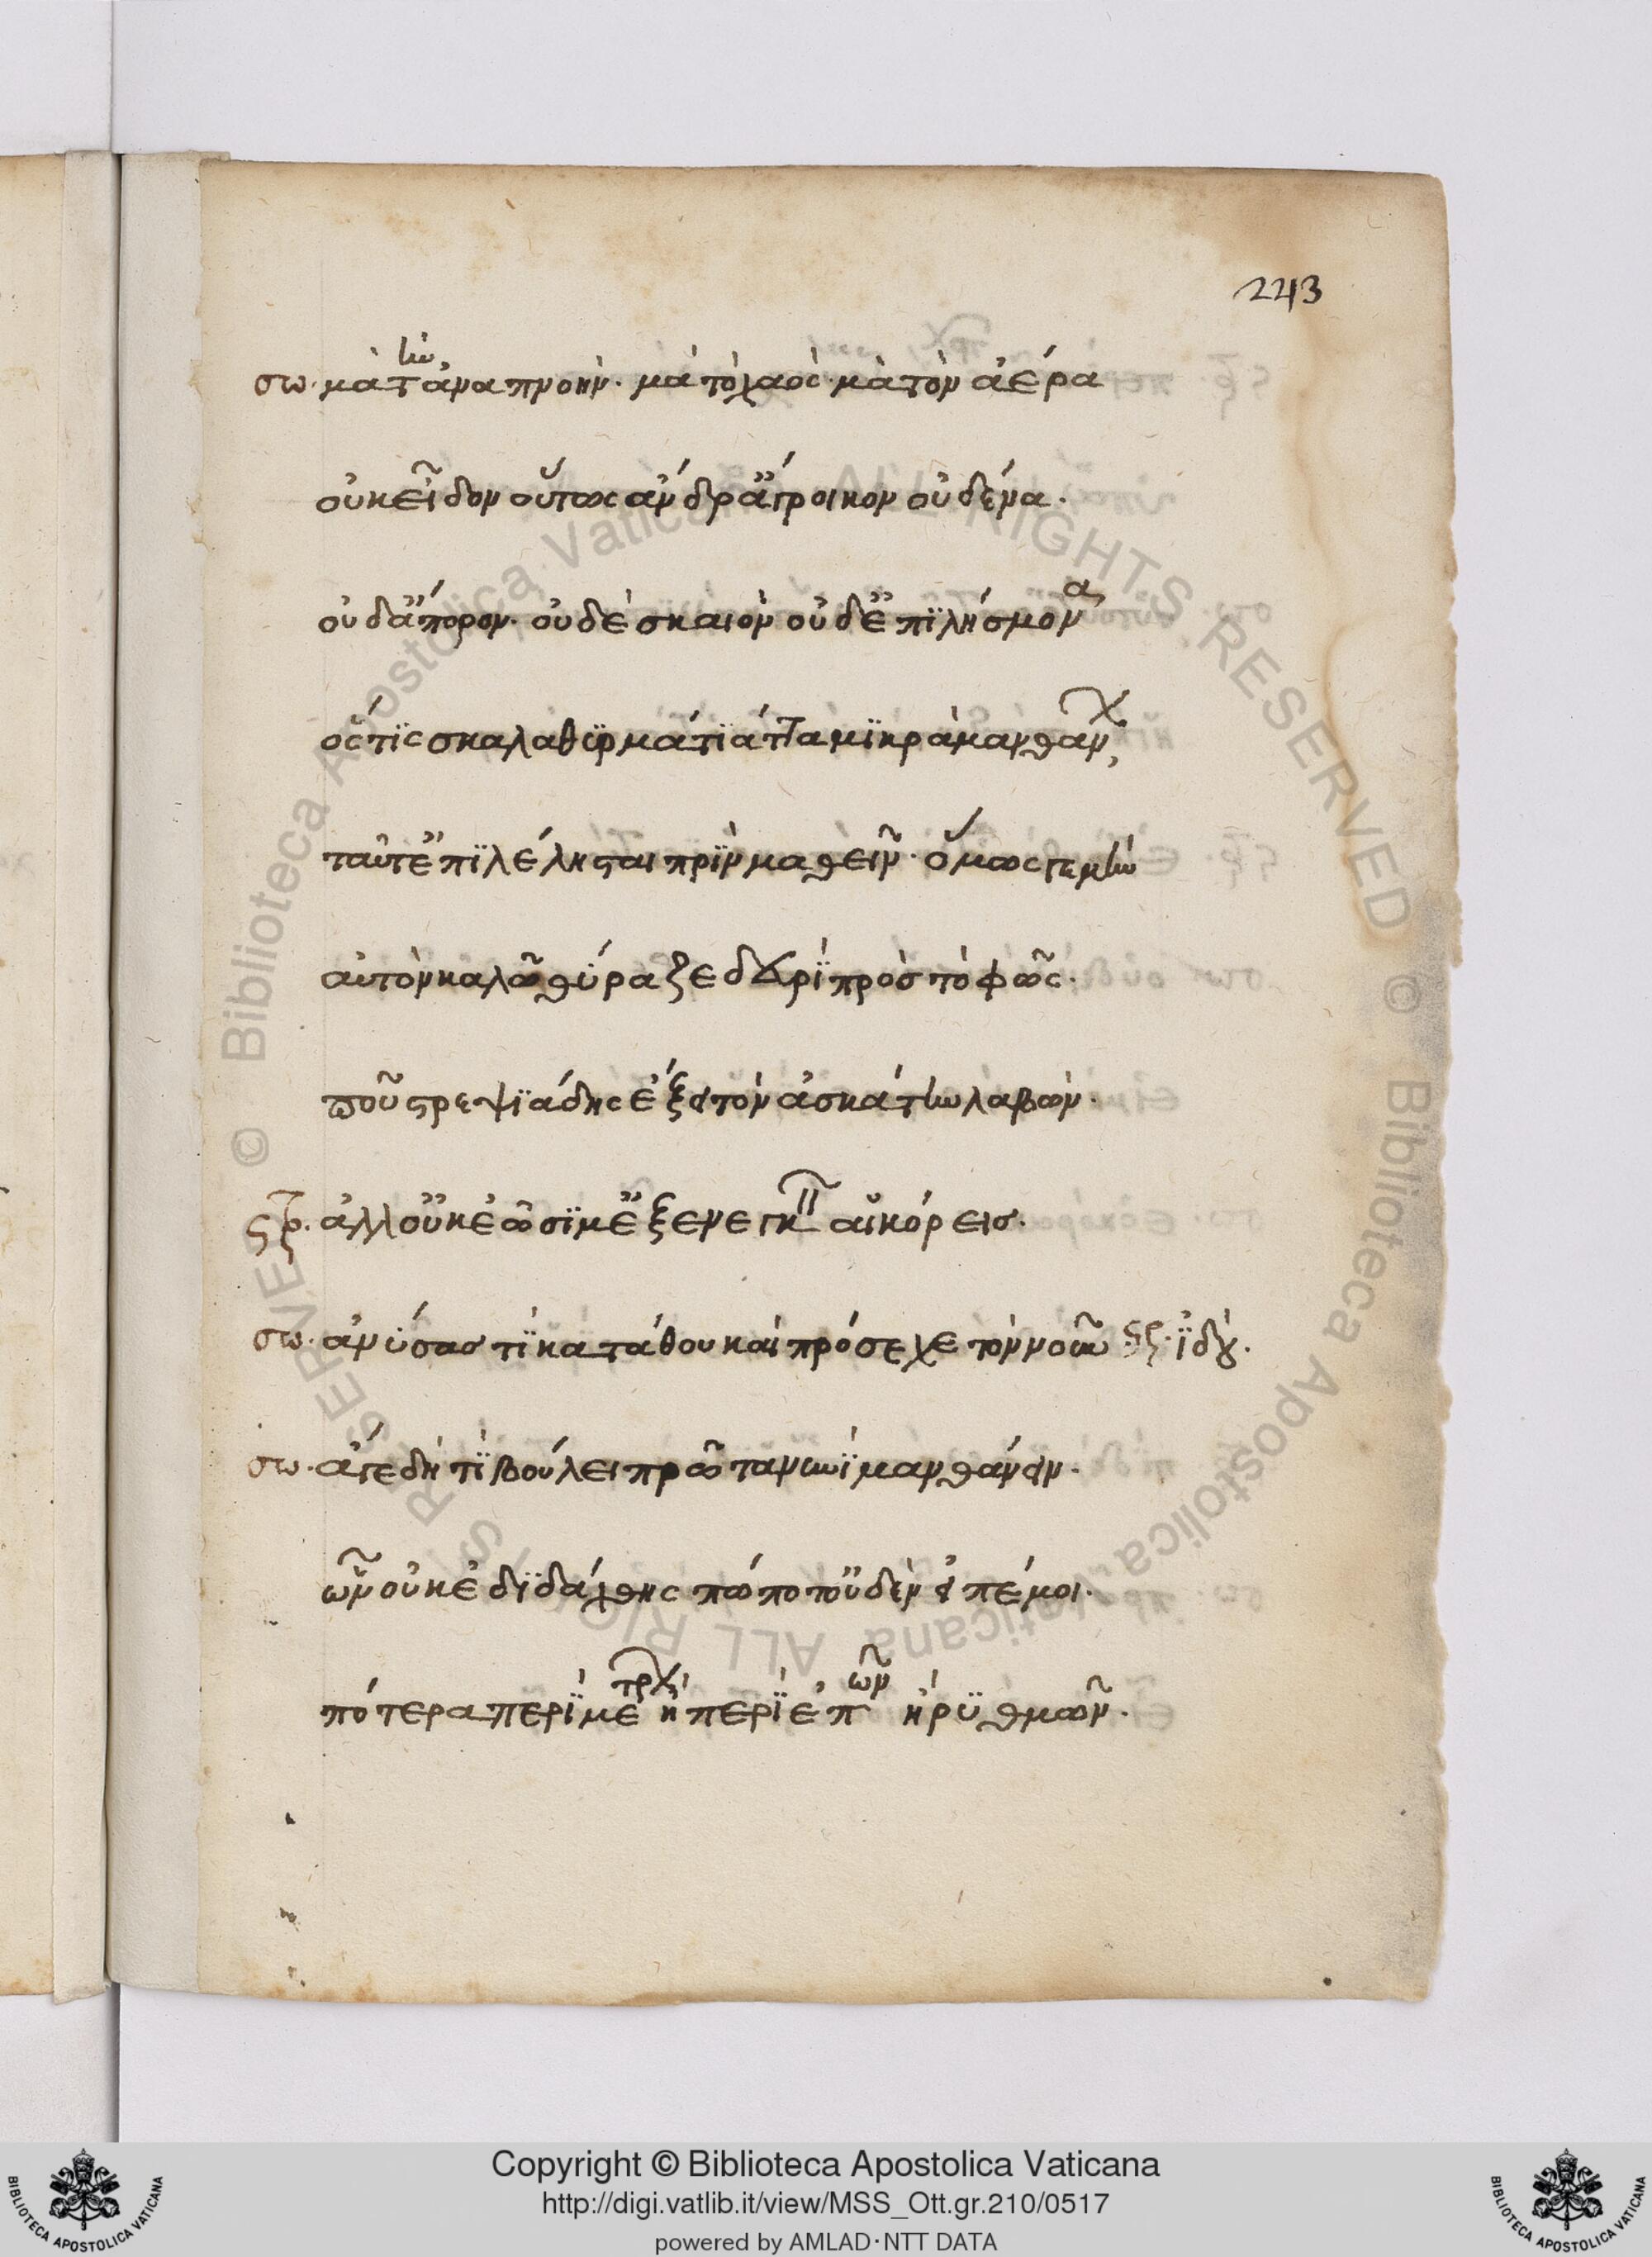 243
σω· μὰ τὴν ἀναπνοὴν· μὰ τὸ χάος· μὰ τὸν ἀέρα
οὐκ εἶδον οὕτως ἄνδρ' ἄγροικον οὐδένα·
οὐδ' ἄπορον· οὐδὲ σκαιὸν οὐδ' ἐπϊλήσμονας
ὅστϊς σκαλαθϋρμάτϊ' ἄττα μϊκρὰ μανθάν
ταῦτ' ἐπϊλέλησται πρϊν μαθεῖν· ὅμως γε μὴν
αὐτὸν καλῶ θύραζε δευρὶ πρὸς τὸ φῶς·
ποῦ στρεψϊάδης ἔξει τὸν ἀσκάντην λαβών·
στρ. ἀλλ' οὐκ ἐῶσϊ μ' ἐξενεγκεῖν οἱ κόρεισ·
σω· ἀνύσασ τϊ κατάθου καὶ πρόσεχε τὸν νοῦν στρ· ϊδού·
σω· ἄγε δὴ τί βούλει πρῶτα νυνϊ μανθάνειν·
ὧν οὐκ ἐδϊδάχθης πώποτ' οὐδὲν εἰπέ μοι·
πότερα περὶ μέτρων ἢ περὶ ἐπῶν ἢ ῥϋθμῶν·
© Biblioteca Apostolica Vaticana ALL RIGHTS RESERVED © Biblioteca Apostolica Vaticana ALL RIGHTS RESERVED
Copyright © Biblioteca Apostolica Vaticana
http://digi.vatlib.it/view/MSS_Ott.gr.210/0517
powered by AMLAD·NTT DATA
BIBLIOTECA APOSTOLICA VATICANA
BIBLIOTECA APOSTOLICA VATICANA